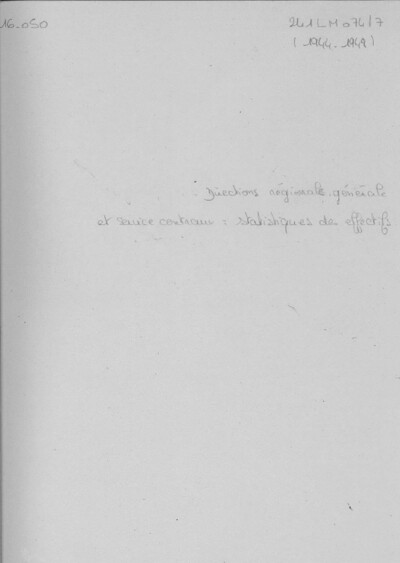 16-050
241 LM 076/7
(1944-1949)
. Directions régionale générale
et service centraux : statistiques des effectifs